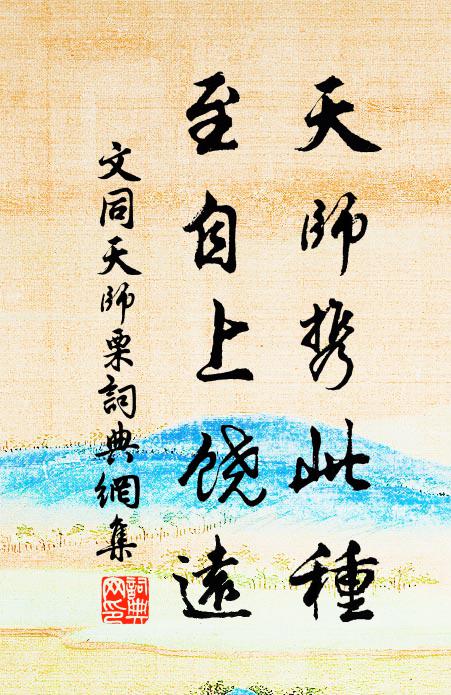 天師携此種
至自上饶遠
文同天師栗詞典網集
詞典